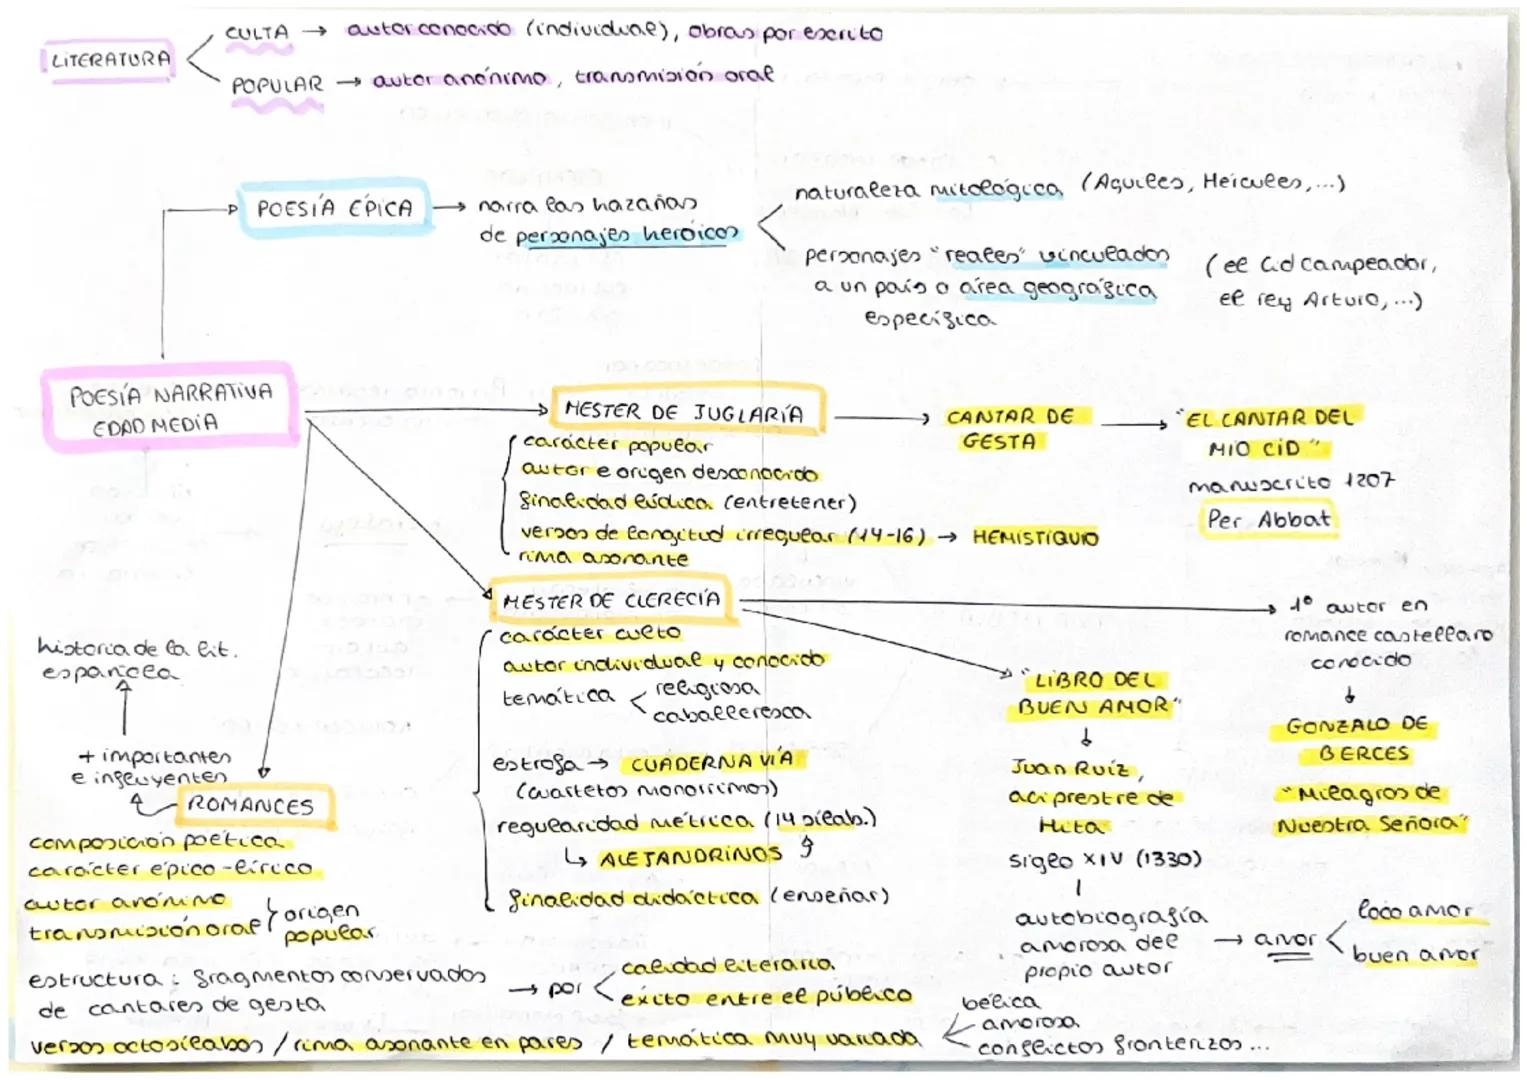 LITERATURA
CULTA → autor conocido (individual), obras por escrito
POPULAR → autor anónimo, transmisión oral
POESÍA ÉPICA → narra las hazañas
de personajes heróicos
naturaleza mitológica (Aquiles, Hércules,...)
personajes "reales" vinculados
a un país o área geográfica
específica
(el Cid campeador,
el rey Arturo, ...)
POESÍA NARRATIVA
EDAD MEDIA
MESTER DE JUGLARÍA
carácter popular
autor e origen desconocido
finalidad lúdica (entretener)
versos de longitud irregular (14-16) → HEMISTIQUIO
rima asonante
CANTAR DE
GESTA
"EL CANTAR DEL
MIO CID"
manuscrito 1207
Per Abbat
MESTER DE CLERECÍA
carácter culto
autor individual y conocido
temática
religiosa
caballeresca
estrofa → CUADERNA VÍA
(cuartetos monorrimos)
regularidad métrica (14 sílab.)
↳ ALEJANDRINOS
finalidad didáctica (enseñar)
"LIBRO DEL
BUEN AMOR"
↓
Juan Ruíz,
aciprestre de
Hita
siglo XIV (1330)
autobiografía
amorosa del
propio autor
→ amor
loco amor
buen amor
1º autor en
romance castellaro
conocido
↓
GONZALO DE
BERCES
"Milagros de
Nuestra Señora"
historia de la lit.
española
+ importantes
e influyentes
ROMANCES
composición poética
carácter épico-lírico
autor anónimo
transmisión oral
origen
popular
estructura: fragmentos conservados
de cantares de gesta
→ por
calidad literaria
éxito entre el público
versos octosílabos / rima asonante en pares / temática muy variada
bélica
amorosa
conflictos fronterizos...